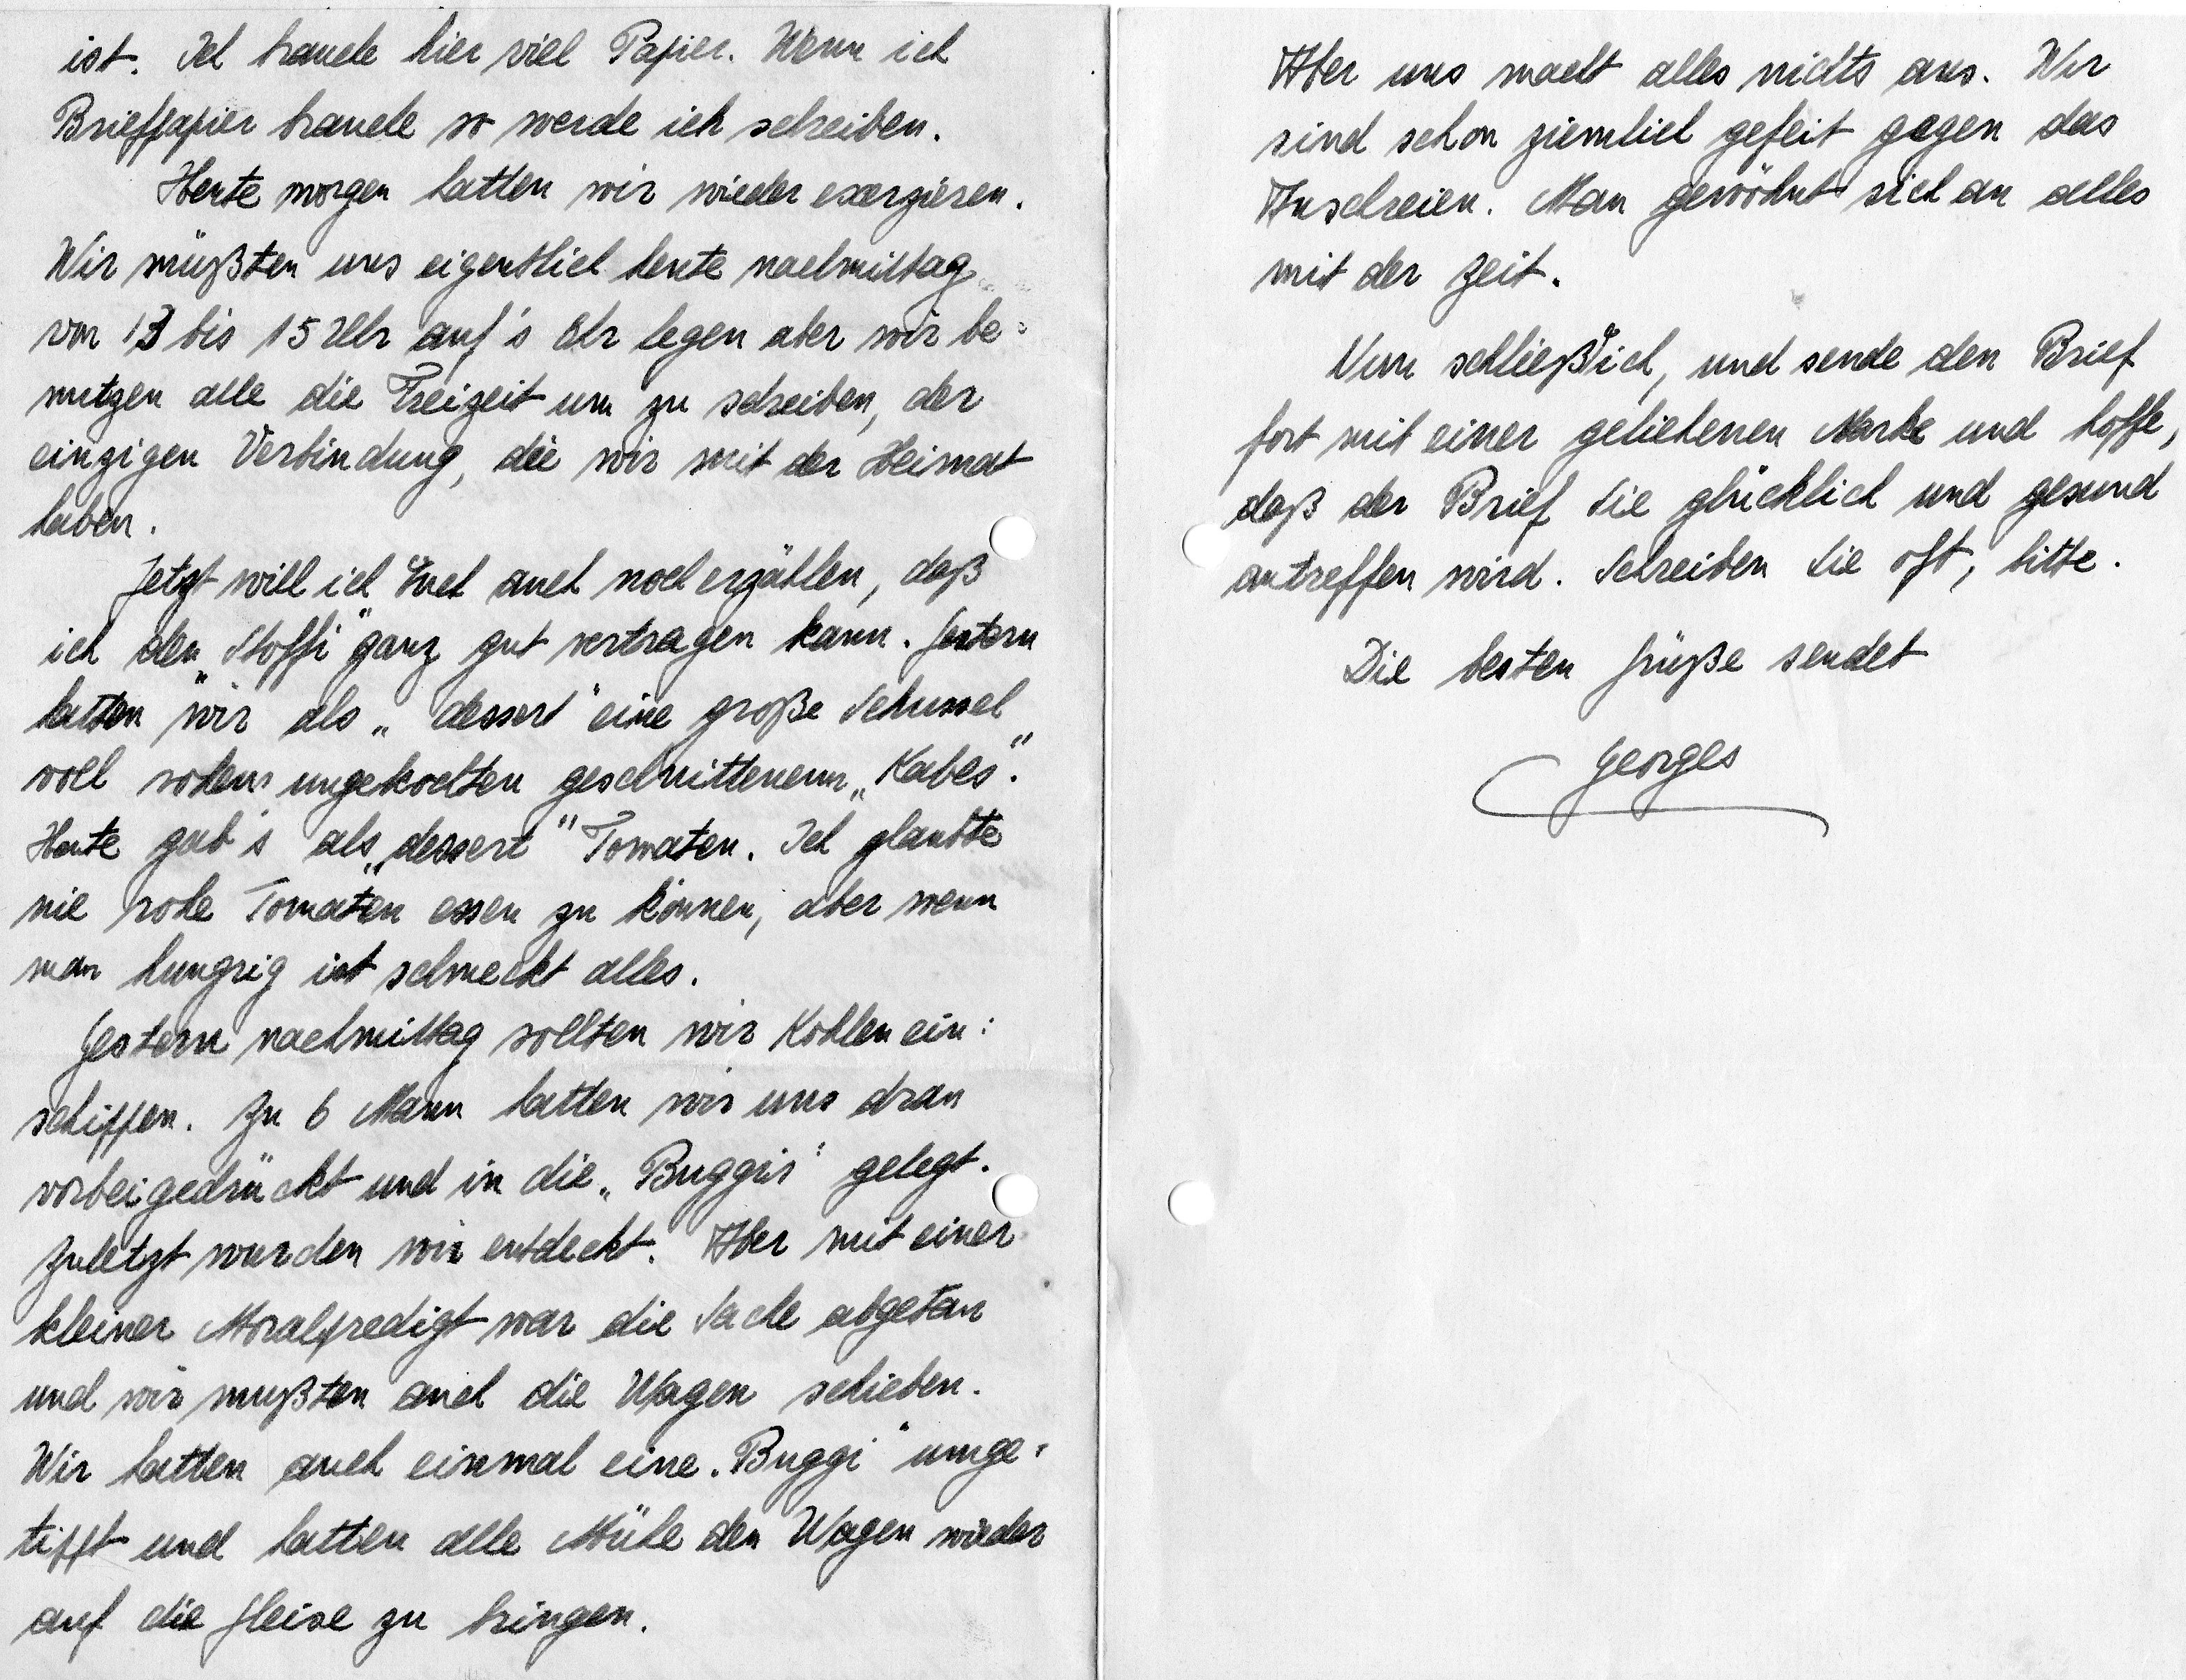 ist. Ich brauche hier viel Papier. Wenn ich
Briefpapier brauche so werde ich schreiben.
Heute morgen hatten wir wieder exerzieren.
Wir müßten uns eigentlich heute nachmittag
von 13 bis 15 Uhr auf's Ohr legen aber wir be=
nutzen alle die Freizeit um zu schreiben, der
einzigen Verbindung, die wir mit der Heimat
haben.
Jetzt will ich Euch auch noch erzählen, daß
ich den „Stoffi" ganz gut vertragen kann. Gestern
hatten wir als „dessert" eine große Schussel
voll rohem ungekochten geschnittenem „Kabes".
Heute gab's als „dessert" Tomaten. Ich glaubte
nie rohe Tomaten essen zu können, aber wenn
man hungrig ist schmeckt alles.
Gestern nachmittag sollten wir Kohlen ein=
schiffen. Zu 6 Mann hatten wir uns dran
vorbeigedrückt und in die „Buggis" gelegt.
Zuletzt wurden wir entdeckt. Aber mit einer
kleiner Moralpredigt war die Sache abgetan
und wir mußten auch die Wagen schieben.
Wir hatten auch einmal eine „Buggi" umge=
tippt und hatten alle Mühe den Wagen wieder
auf die Gleise zu bringen.
Aber uns macht alles nichts aus. Wir
sind schon ziemlich gefeit gegen das
Anschreien. Man gewöhnt sich an alles
mit der Zeit.
Nun schließ' ich, und sende den Brief
fort mit einer geliehenen Marke und hoffe,
daß der Brief Sie glücklich und gesund
antreffen wird. Schreiben Sie oft, bitte.
Die besten Grüße sendet
Georges